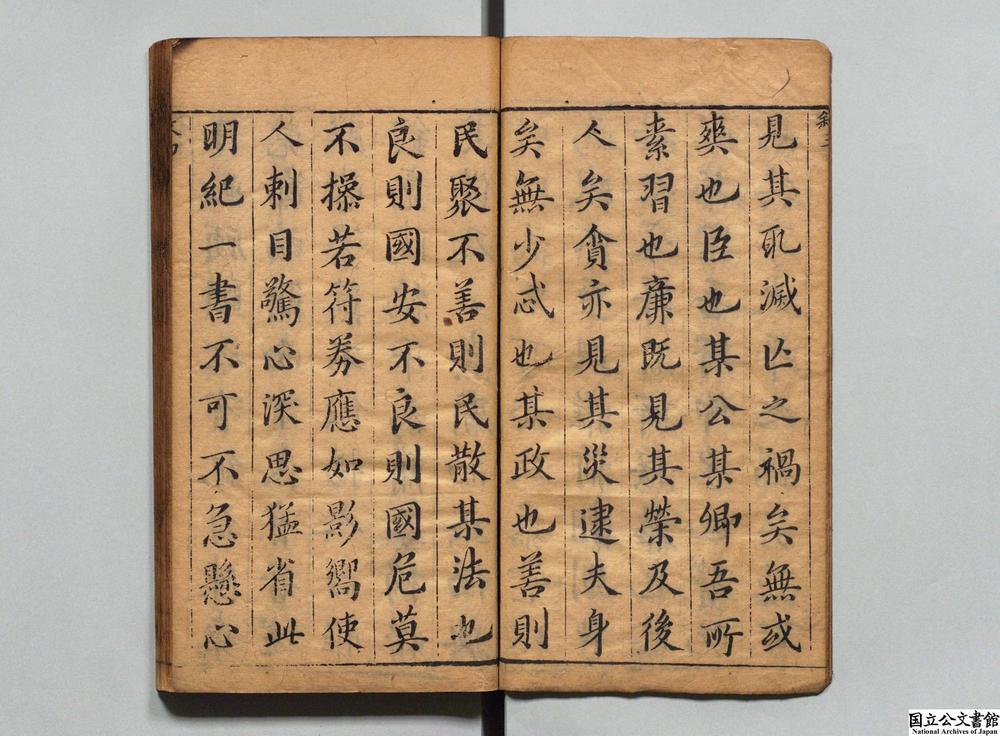 見其取滅亡之禍矣無或
爽也臣也某公某卿吾所
素習也廉既見其榮及後
人矣貪亦見其災逮夫身
矣無少忒也某政也善則
民聚不善則民散某法也
良則國安不良則國危莫
不操若符券應如影嚮使
人刺目驚心深思猛省此
明紀一書不可不急懸心
国立公文書館
National Archives of Japan